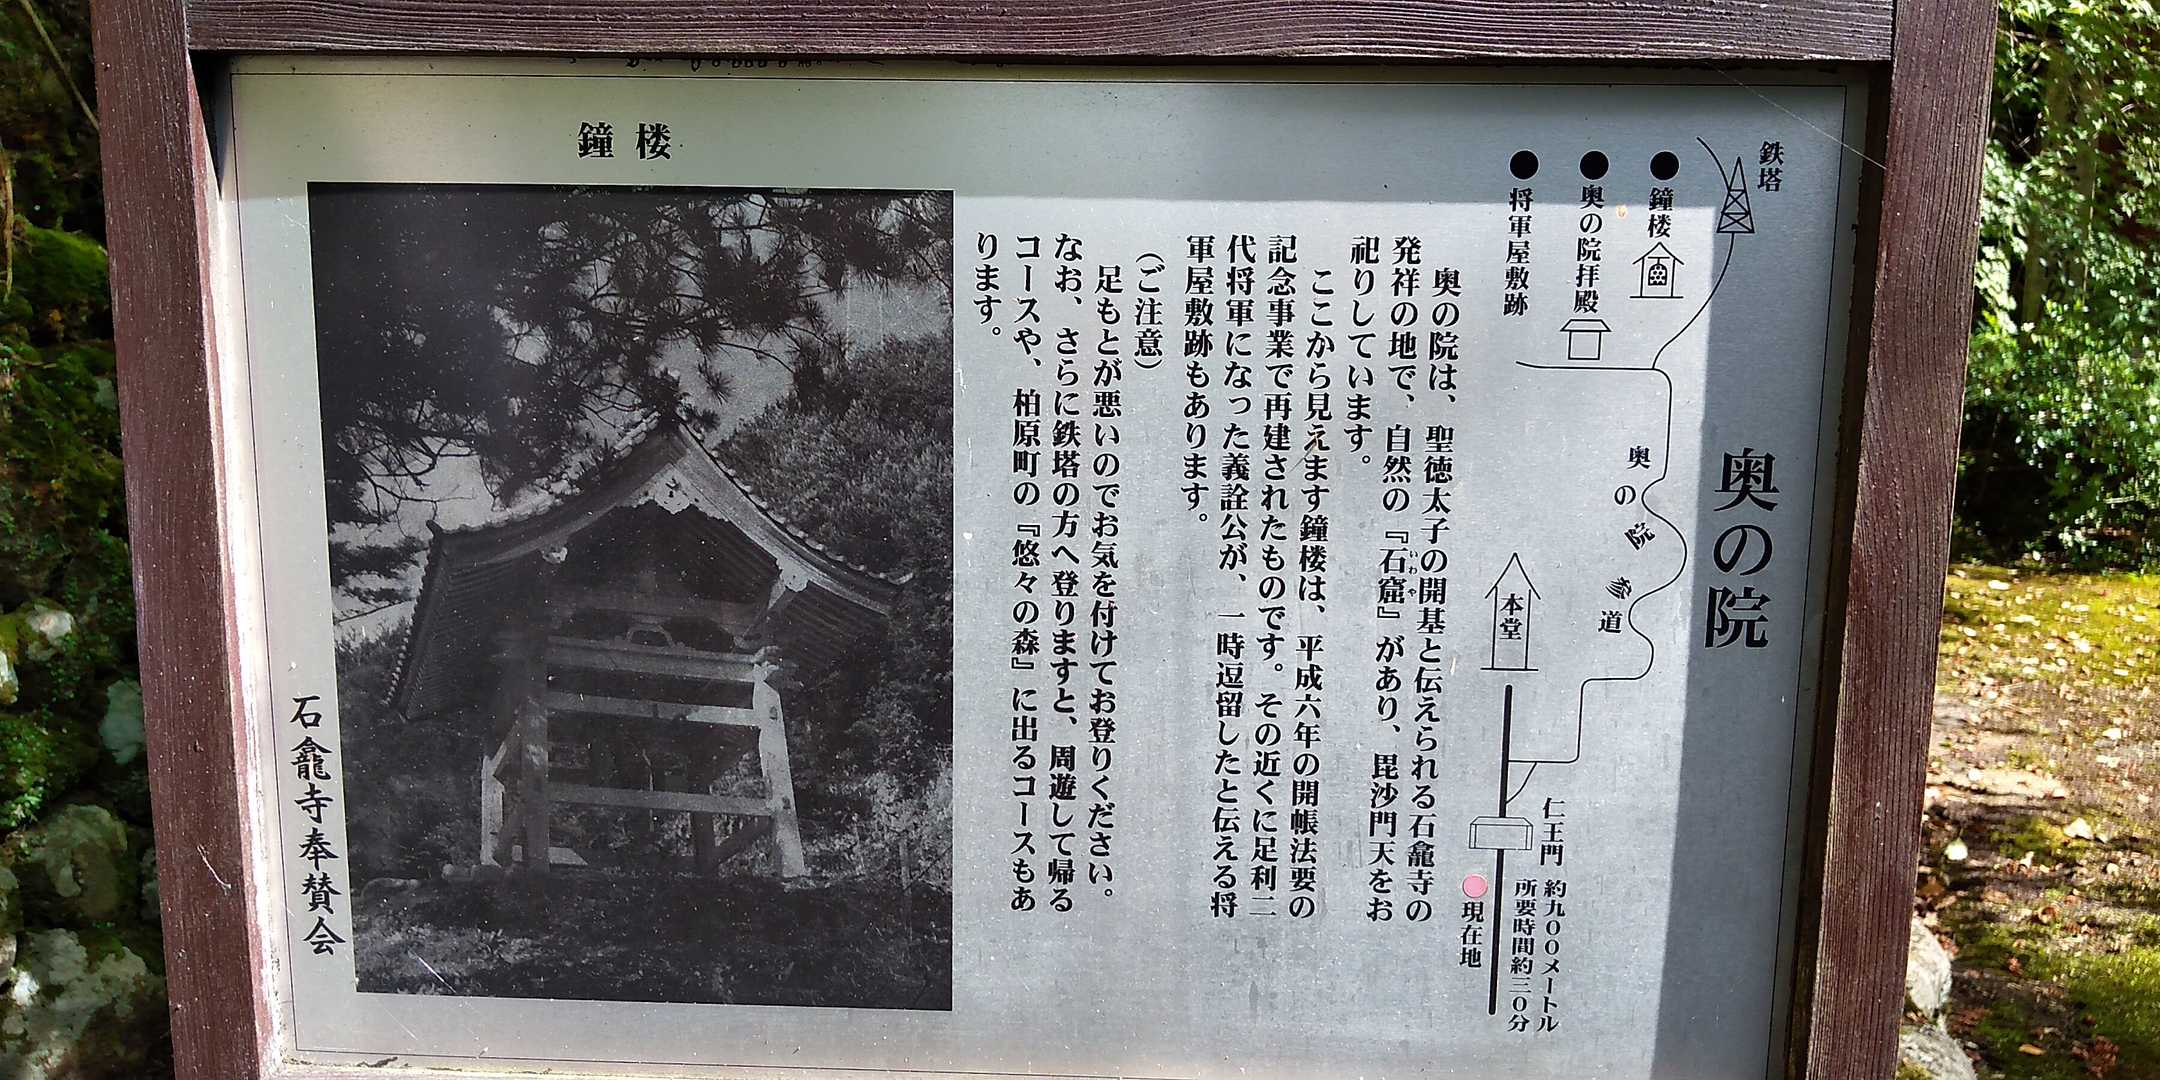 奥の院
鉄塔
●鐘楼
●奥の院拝殿
●将軍屋敷跡
奥の院参道
本堂
仁王門
約九〇〇メートル
所要時間約三〇分
現在地
奥の院は、聖徳太子の開基と伝えられる石龕寺の
発祥の地で、自然の『石窟』があり、毘沙門天をお
いわや
祀りしています。
ここから見えます鐘楼は、平成六年の開帳法要の
記念事業で再建されたものです。その近くに足利二
代将軍になった義詮公が、一時逗留したと伝える将
軍屋敷跡もあります。
(ご注意)
足もとが悪いのでお気を付けてお登りください。
なお、さらに鉄塔の方へ登りますと、周遊して帰る
コースや、柏原町の『悠々の森』に出るコースもあ
ります。
鐘楼
石龕寺奉賛会